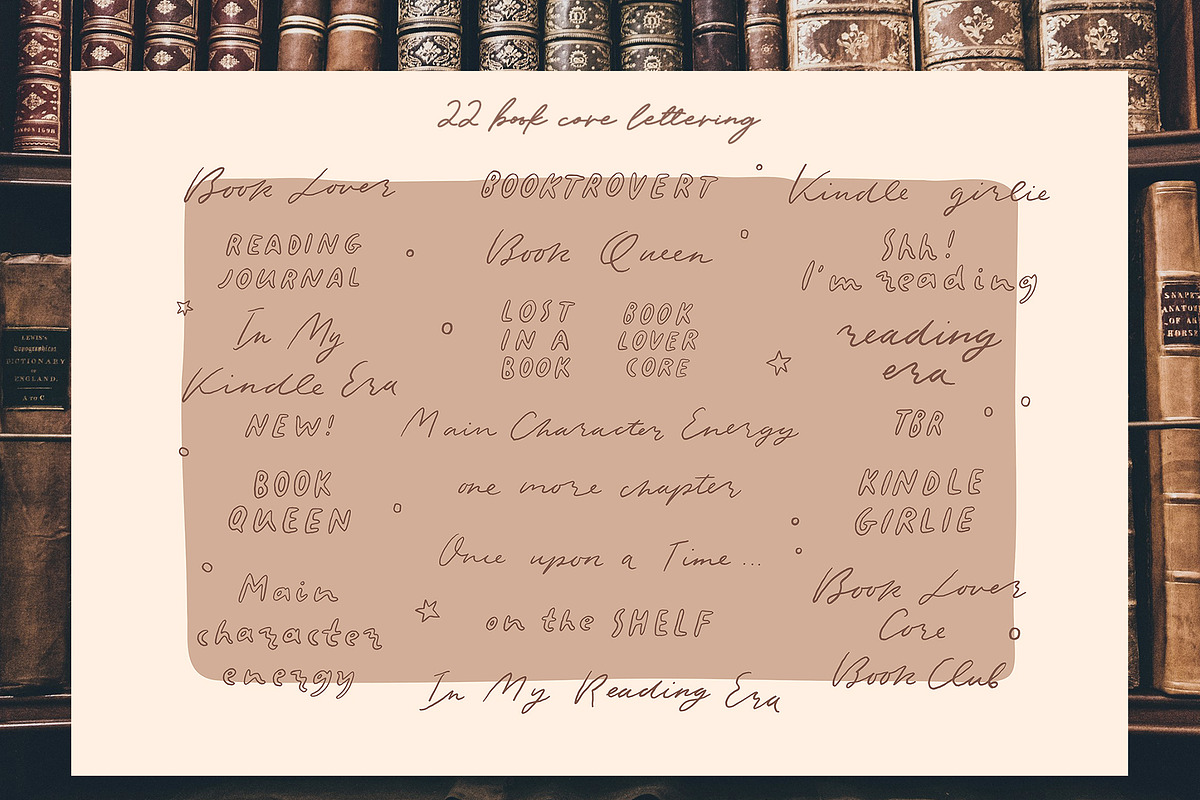 22 book core lettering
Book Lover
BOOKTROVERT
Kindle girlie
READING
JOURNAL
Book Queen
Shh!
I'm reading
In My
Kindle Era
LOST
IN A
BOOK
BOOK
LOVER
CORE
reading
era
NEW!
Main Character Energy
TBR
BOOK
QUEEN
one more chapter
KINDLE
GIRLIE
Once upon a Time...
Main
character
energy
on the SHELF
Book Lover
Core
In My Reading Era
Book Club
LONDON 1698
LEWIS'S
Topographical
DICTIONARY
OF
ENGLAND.
A TO C
SNAPE'S
ANATOMY
OF AN
HORSE